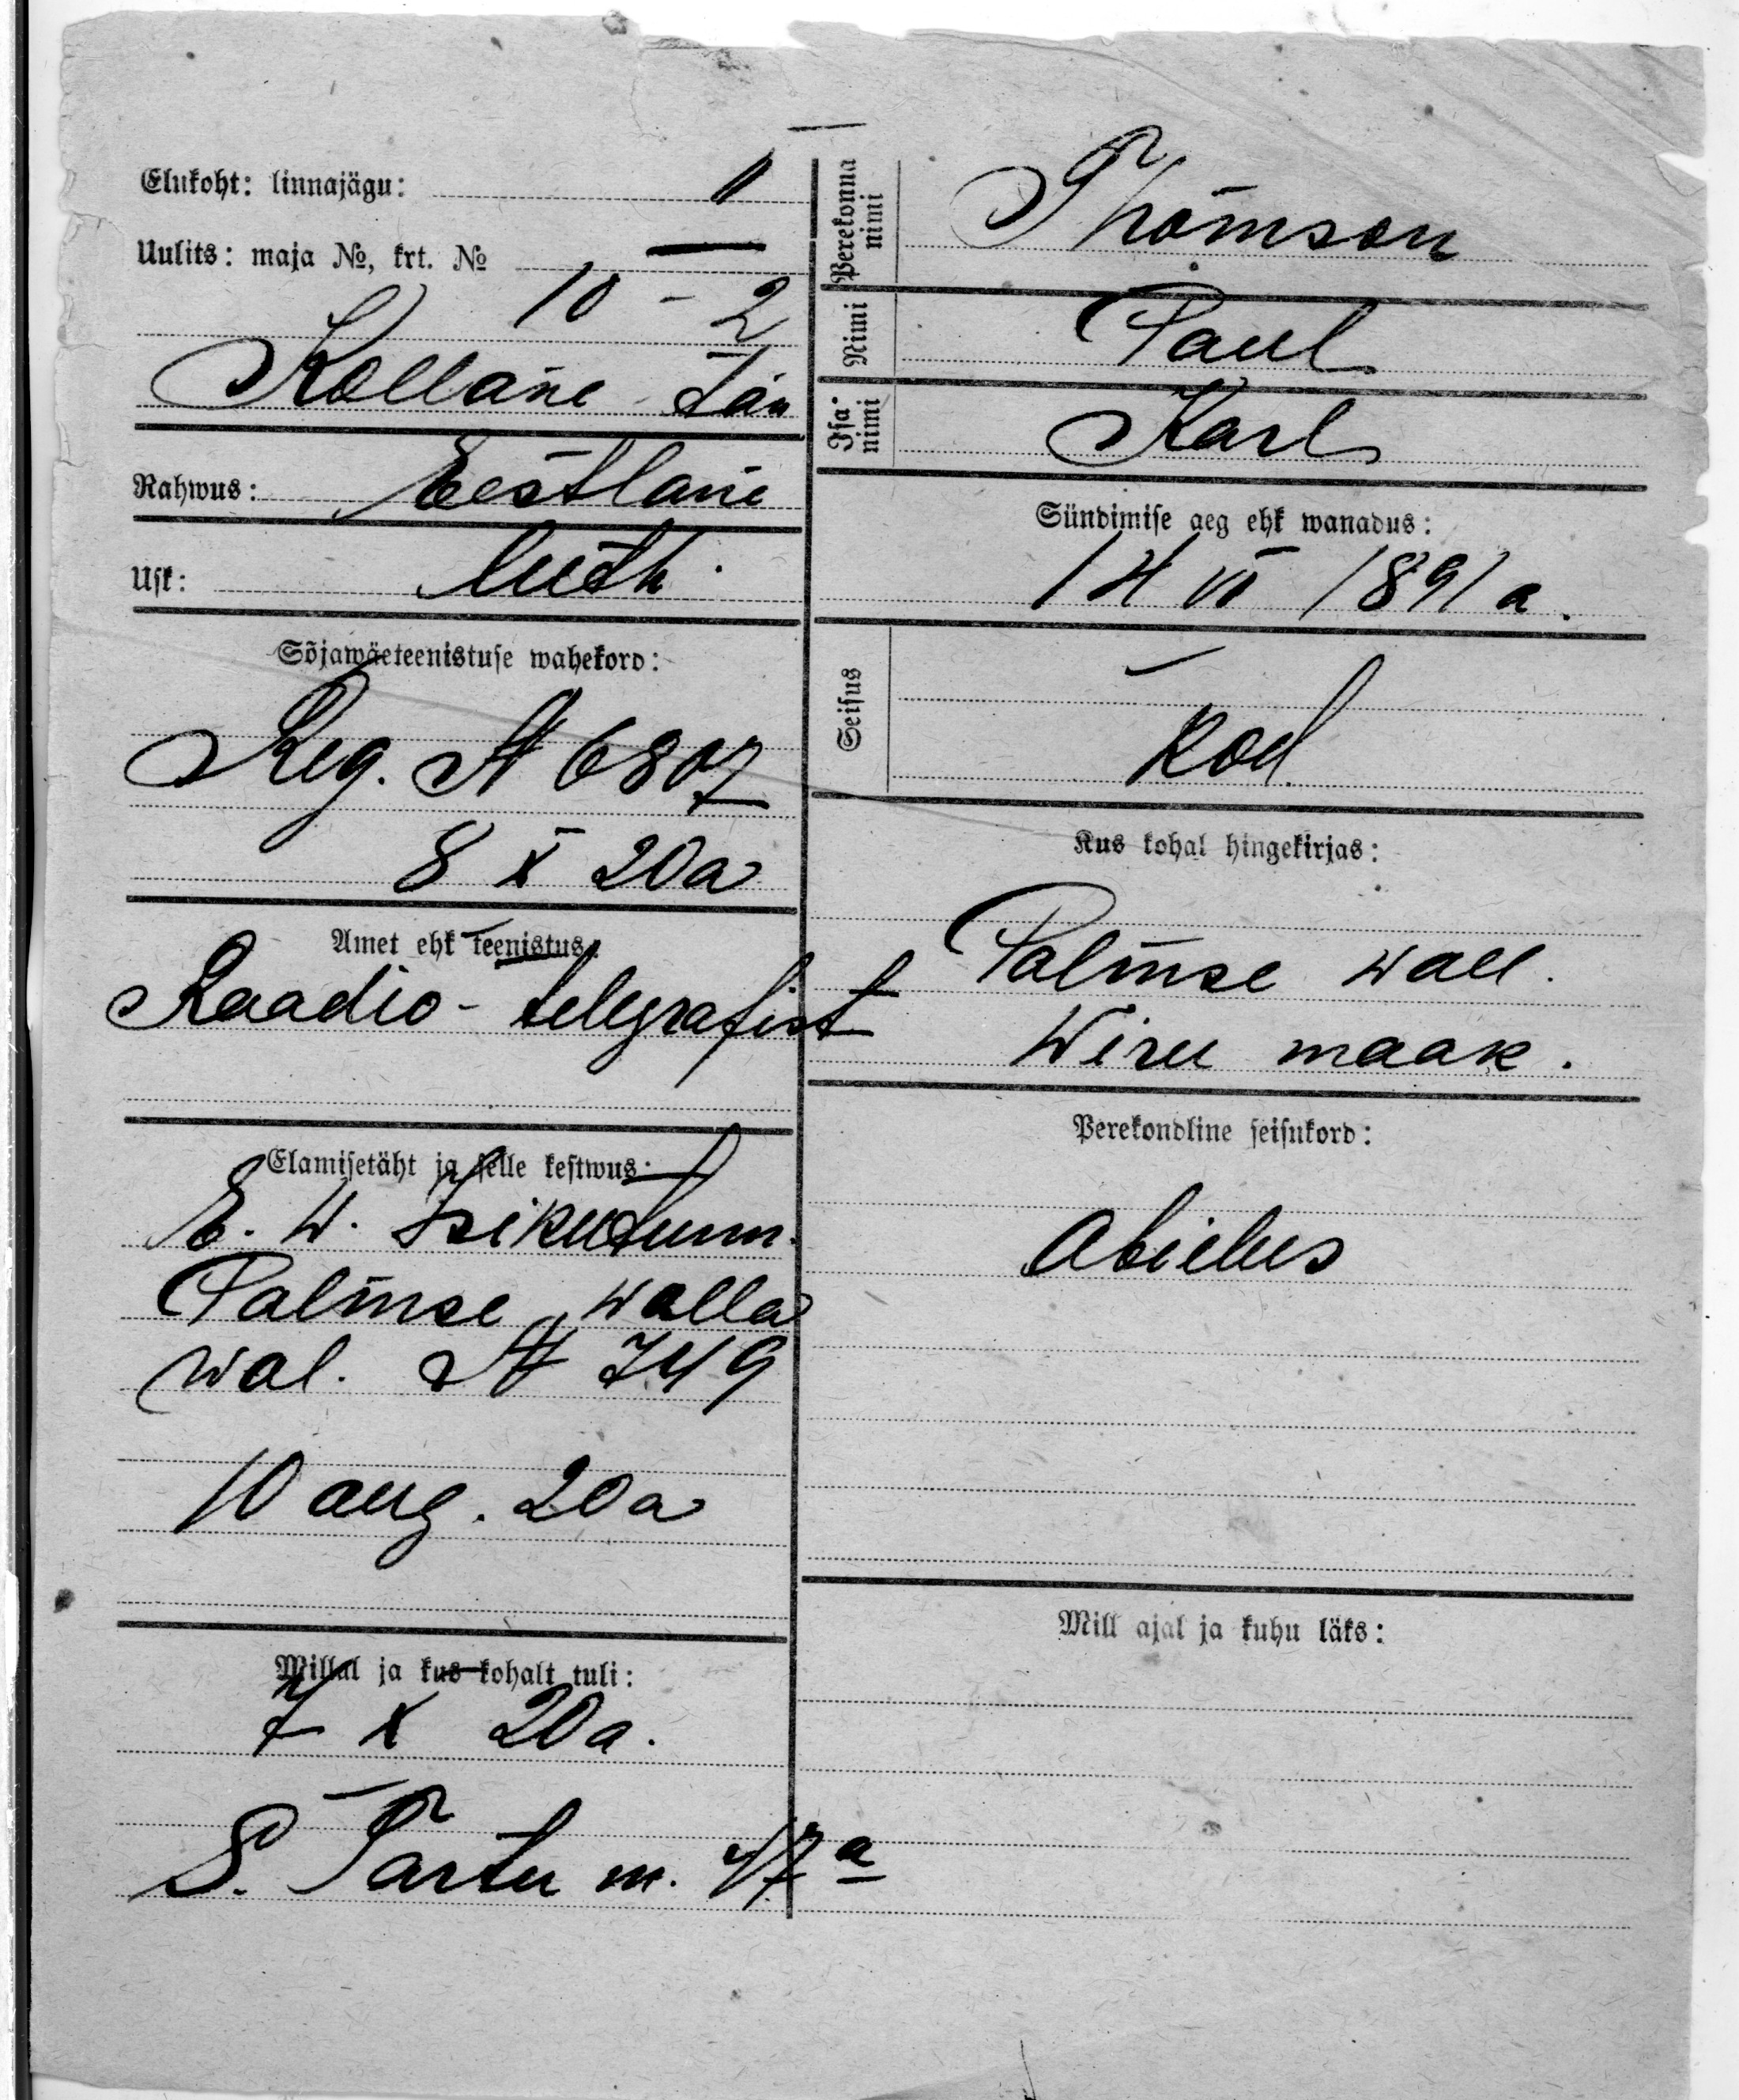 Elukoht: linnajägu: I
Uulits: maja №, krt. №
10 - 2
Kollane tän
Rahwus: Eestlane
Usk: luth.
Sõjawäeteenistuse wahekord:
Reg. № 6807
8 X 20 a
Amet ehk teenistus:
Raadio-telegrafist
Elamisetäht ja selle kestwus:
E. W. Isikutunn.
Palmse walla
wal. № 749
10 aug. 20 a
Millal ja kus kohalt tuli:
7 X 20 a.
S. Tartu m. 47 a
Perekonna nimi
Thomson
Nimi
Paul
Isa nimi
Karl
Sündimise aeg ehk wanadus:
14 VI 1891 a.
Seisus
kod.
Kus kohal hingekirjas:
Palmse wall.
Wiru maak.
Perekondline seisukord:
abielus
Mill ajal ja kuhu läks: